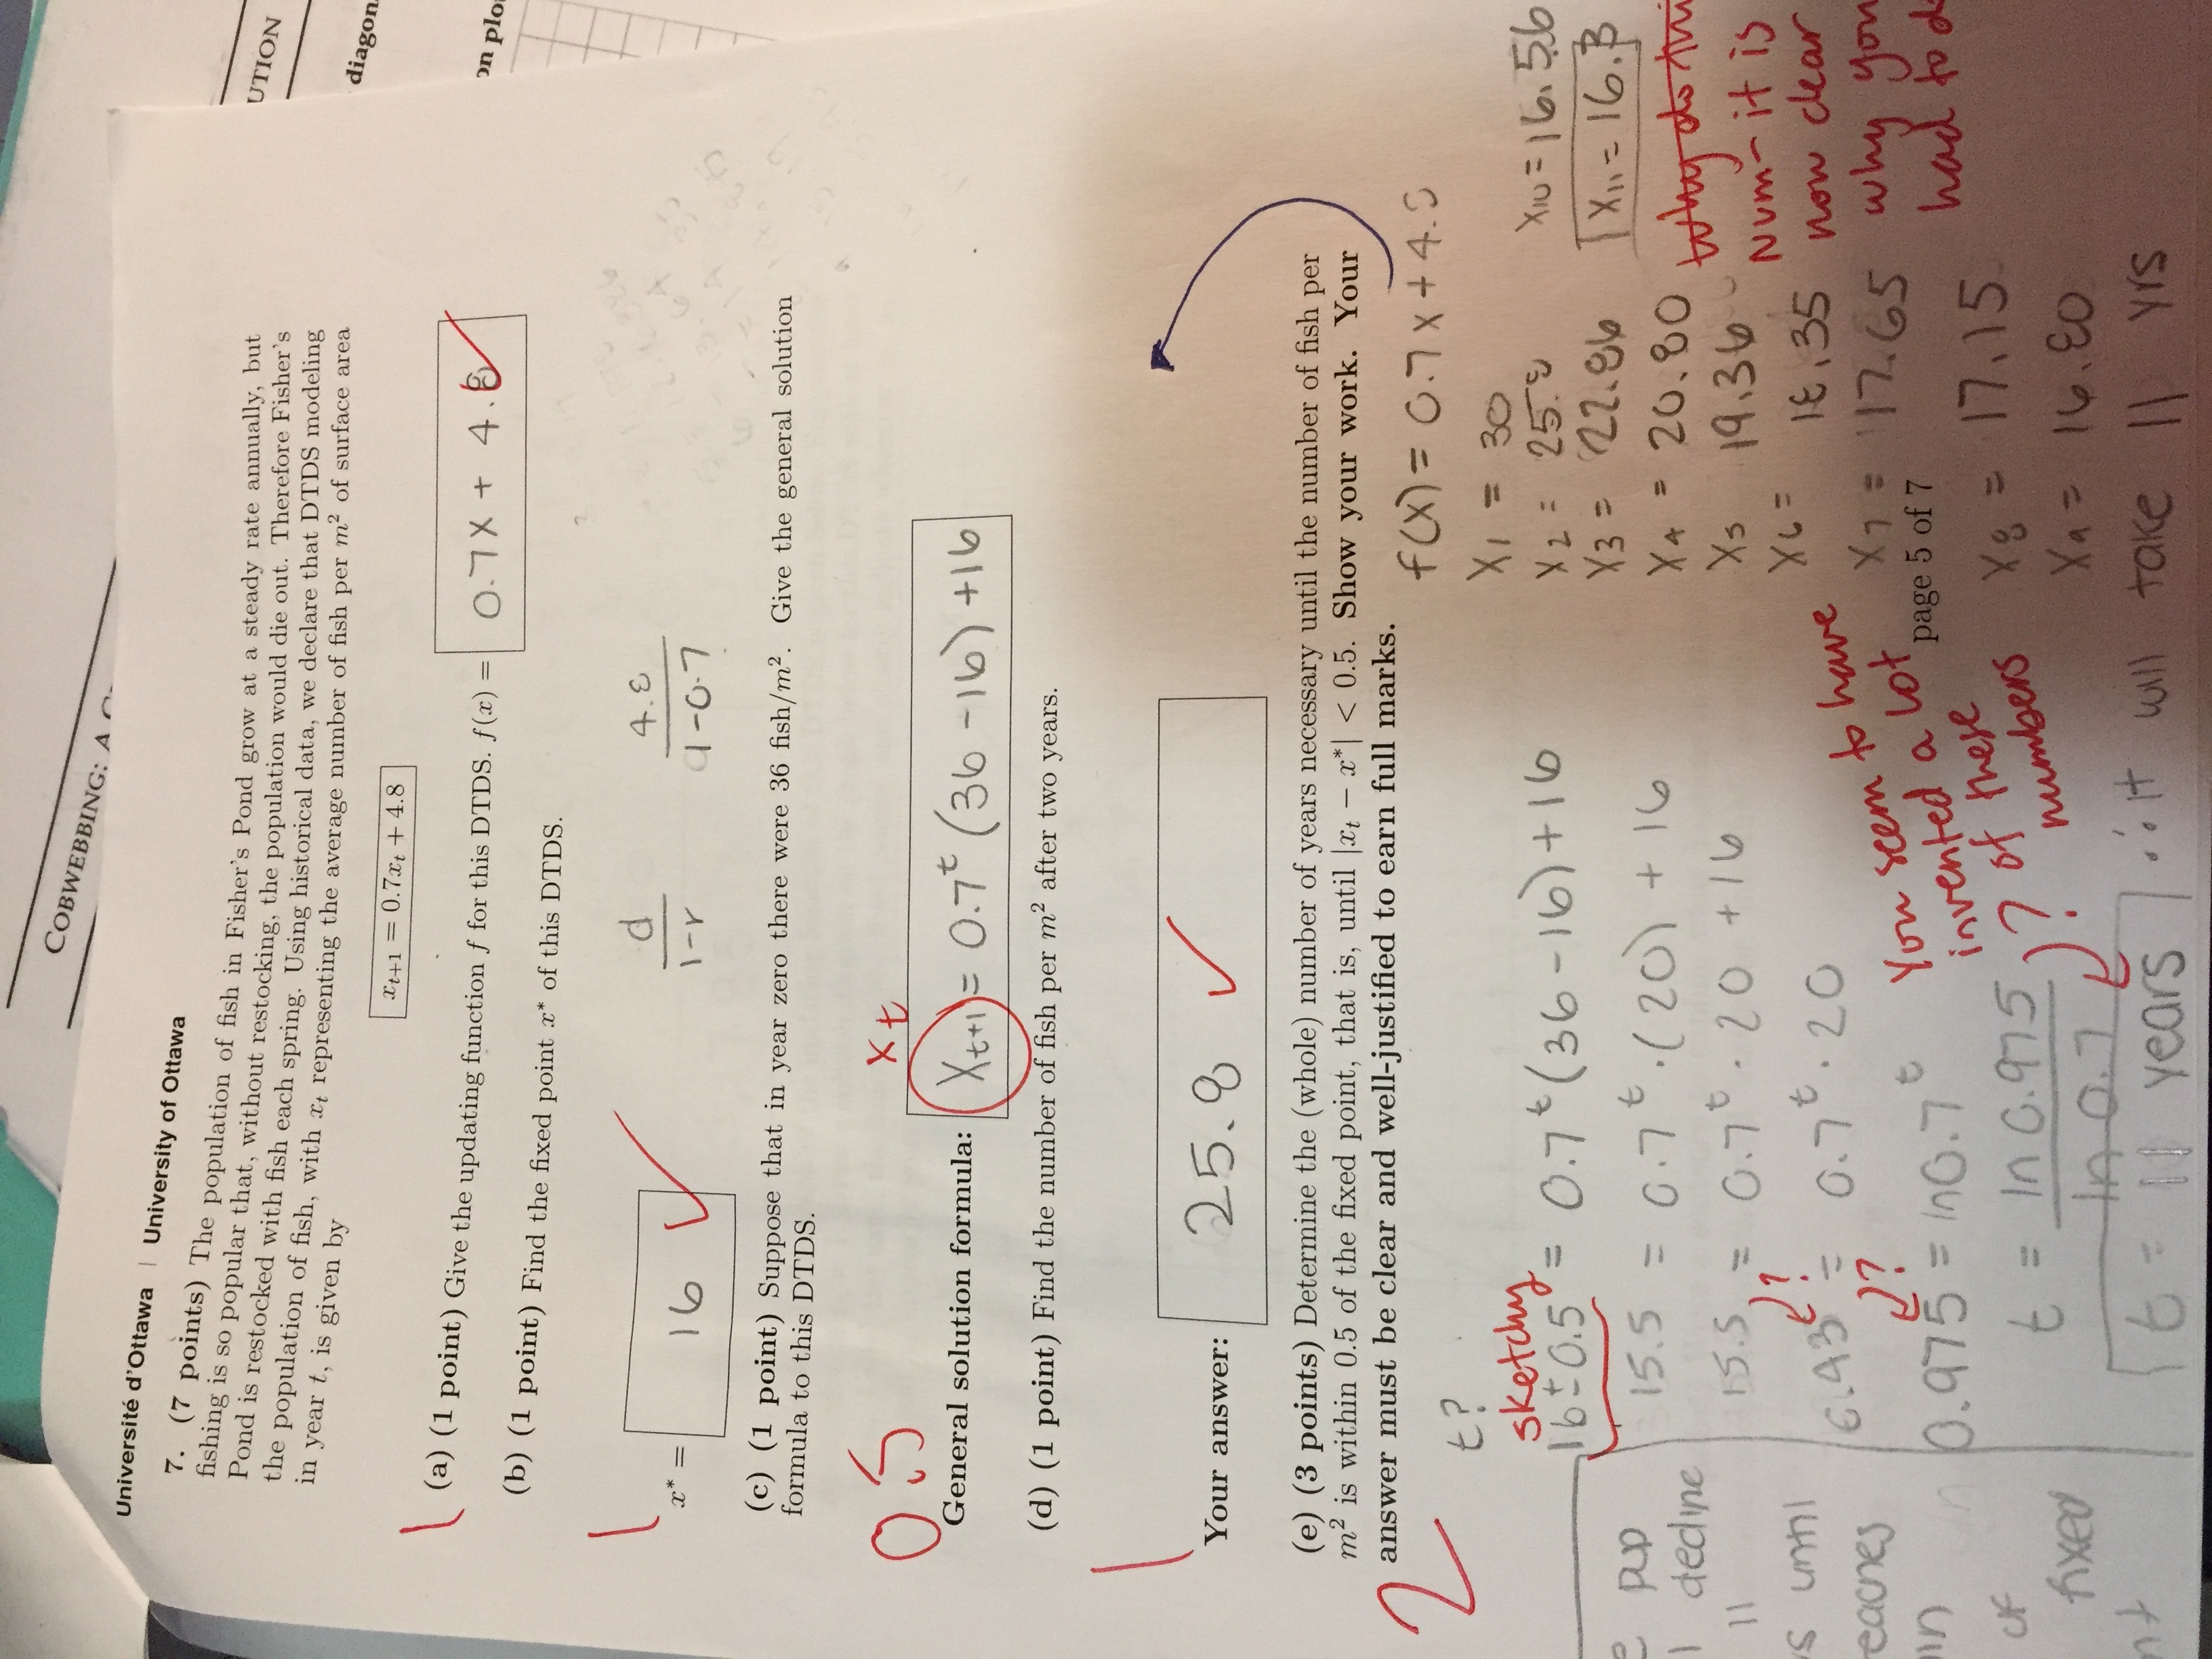 UTION
diagon
on plo
COBWEBBING: A C
Université d'Ottawa | University of Ottawa
7. (7 points) The population of fish in Fisher's Pond grow at a steady rate annually, but
fishing is so popular that, without restocking, the population would die out. Therefore Fisher's
Pond is restocked with fish each spring. Using historical data, we declare that DTDS modeling
the population of fish, with x_t representing the average number of fish per m² of surface area
in year t, is given by
x_{t+1} = 0.7x_t + 4.8
(a) (1 point) Give the updating function f for this DTDS. f(x) = 0.7x + 4.8
(b) (1 point) Find the fixed point x* of this DTDS.
d/1-r 4.8/1-0.7
x* = 16
(c) (1 point) Suppose that in year zero there were 36 fish/m². Give the general solution
formula to this DTDS.
0.5
x_t
General solution formula: x_{t+1} = 0.7^t (36-16) +16
(d) (1 point) Find the number of fish per m² after two years.
Your answer: 25.8
(e) (3 points) Determine the (whole) number of years necessary until the number of fish per
m² is within 0.5 of the fixed point, that is, until |x_t − x*| < 0.5. Show your work. Your
answer must be clear and well-justified to earn full marks.
2
t?
sketchy
16±0.5 = 0.7^t (36-16)+16
15.5 = 0.7^t · (20) + 16
15.5 = 0.7^t · 20 +16
6.43 = 0.7^t · 20
0.975 = ln0.7^t
t = ln0.975/ln0.7
t = 11 years
∴ it will take 11 yrs
?
?
?
You seem to have
invented a lot
of these
numbers
pop
decline
11
s until
reaches
min
of
fixed
nt
f(x) = 0.7x + 4.8
x1 = 30
x2 = 25.8
x3 = 22.86
x4 = 20.80
x5 19.36
x6 = 18.35
x7 = 17.65
x8 = 17.15
x9 = 16.80
x10 = 16.56
x11 = 16.3
why do thi
Num- it is
now clear
why you
had to d
page 5 of 7